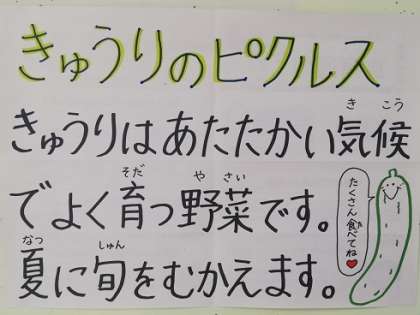 きゅうりのピクルス
きゅうりはあたたかい気候
きこう
でよく育つ野菜です。
そだ
やさい
夏に旬をむかえます。
なつ
しゅん
たくさん食べてね❤
た